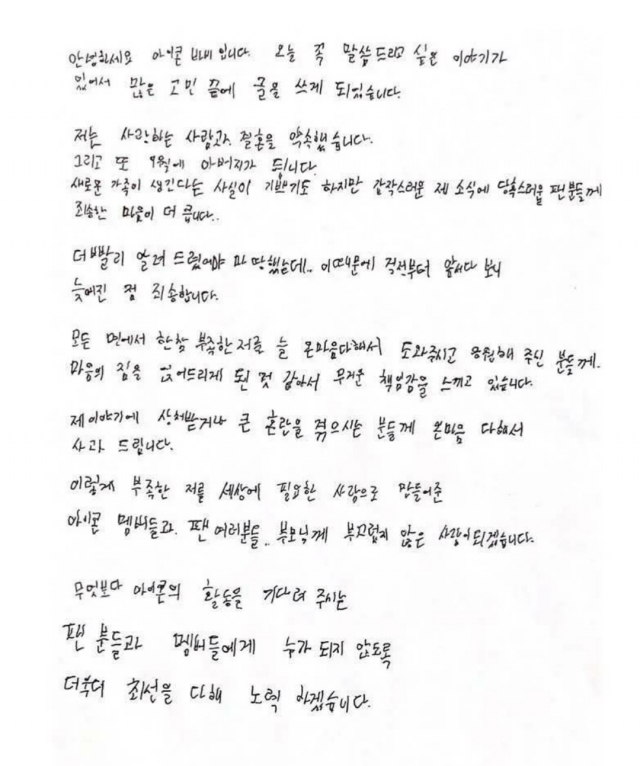 안녕하세요 아이콘 바비 입니다. 오늘 꼭 말씀드리고 싶은 이야기가
있어서 많은 고민 끝에 글을 쓰게 되었습니다.
저는 사랑하는 사람과 결혼을 약속했습니다.
그리고 또 9월에 아버지가 됩니다
새로운 가족이 생긴다는 사실이 기쁘기도 하지만 갑작스러운 제 소식에 당혹스러울 팬분들께
죄송한 마음이 더 큽니다..
더 빨리 알려 드렸어야 마땅했는데.. 이 때문에 걱정부터 앞서다 보니
늦어진 점 죄송합니다.
모든 면에서 한참 부족한 저를 늘 온마음다해서 도와주시고 응원해 주신 분들께.
마음의 짐을 얹어드리게 된 것 같아서 무거운 책임감을 느끼고 있습니다.
제 이야기에 상처받거나 큰 혼란을 겪으시는 분들께 온마음 다해서
사과 드립니다.
이렇게 부족한 저를 세상에 필요한 사람으로 만들어준
아이콘 멤버들과. 팬 여러분들.. 부모님께 부끄럽지 않은 사람이 되겠습니다.
무엇보다 아이콘의 활동을 기다려 주시는
팬 분들과 멤버들에게 누가 되지 않도록
더욱더 최선을 다해 노력 하겠습니다.